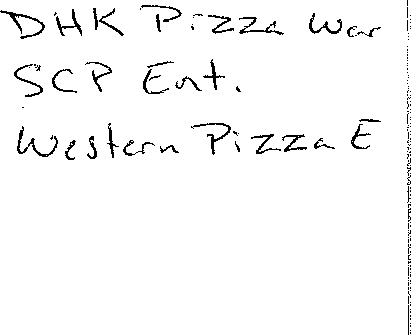 DHK Pizza War
SCP Ent.
Western Pizza E